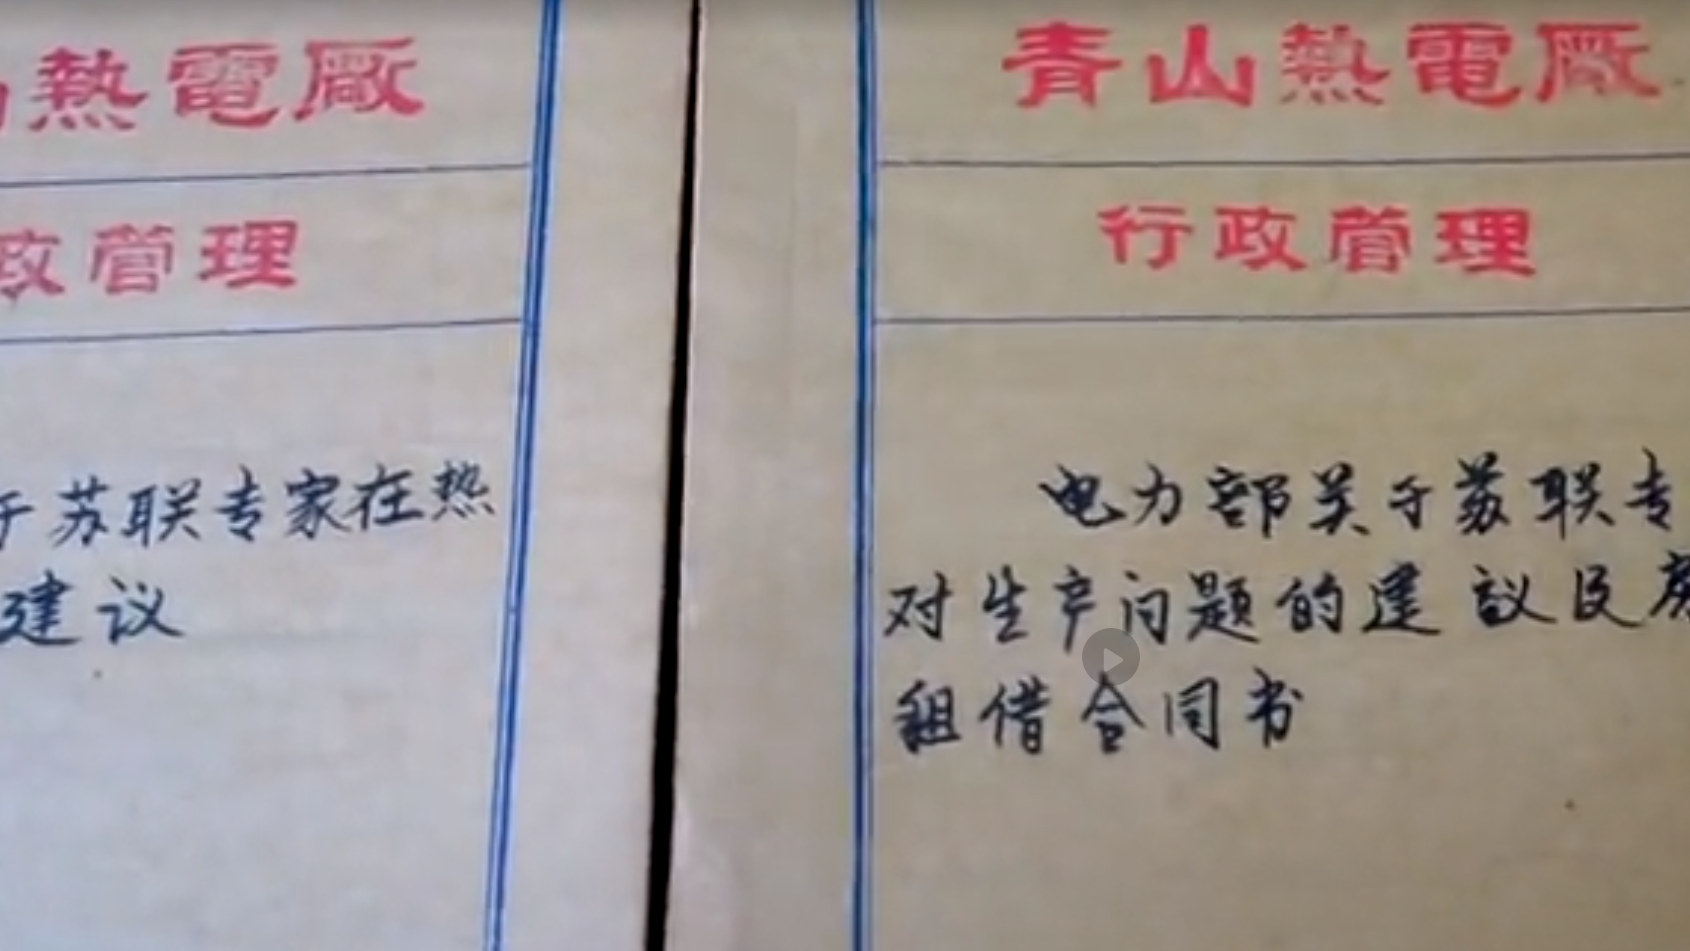 熱電廠
政管理
于苏联专家在热
建议
青山熱電廠
行政管理
电力部关于苏联专
对生产问题的建议及房
租借合同书